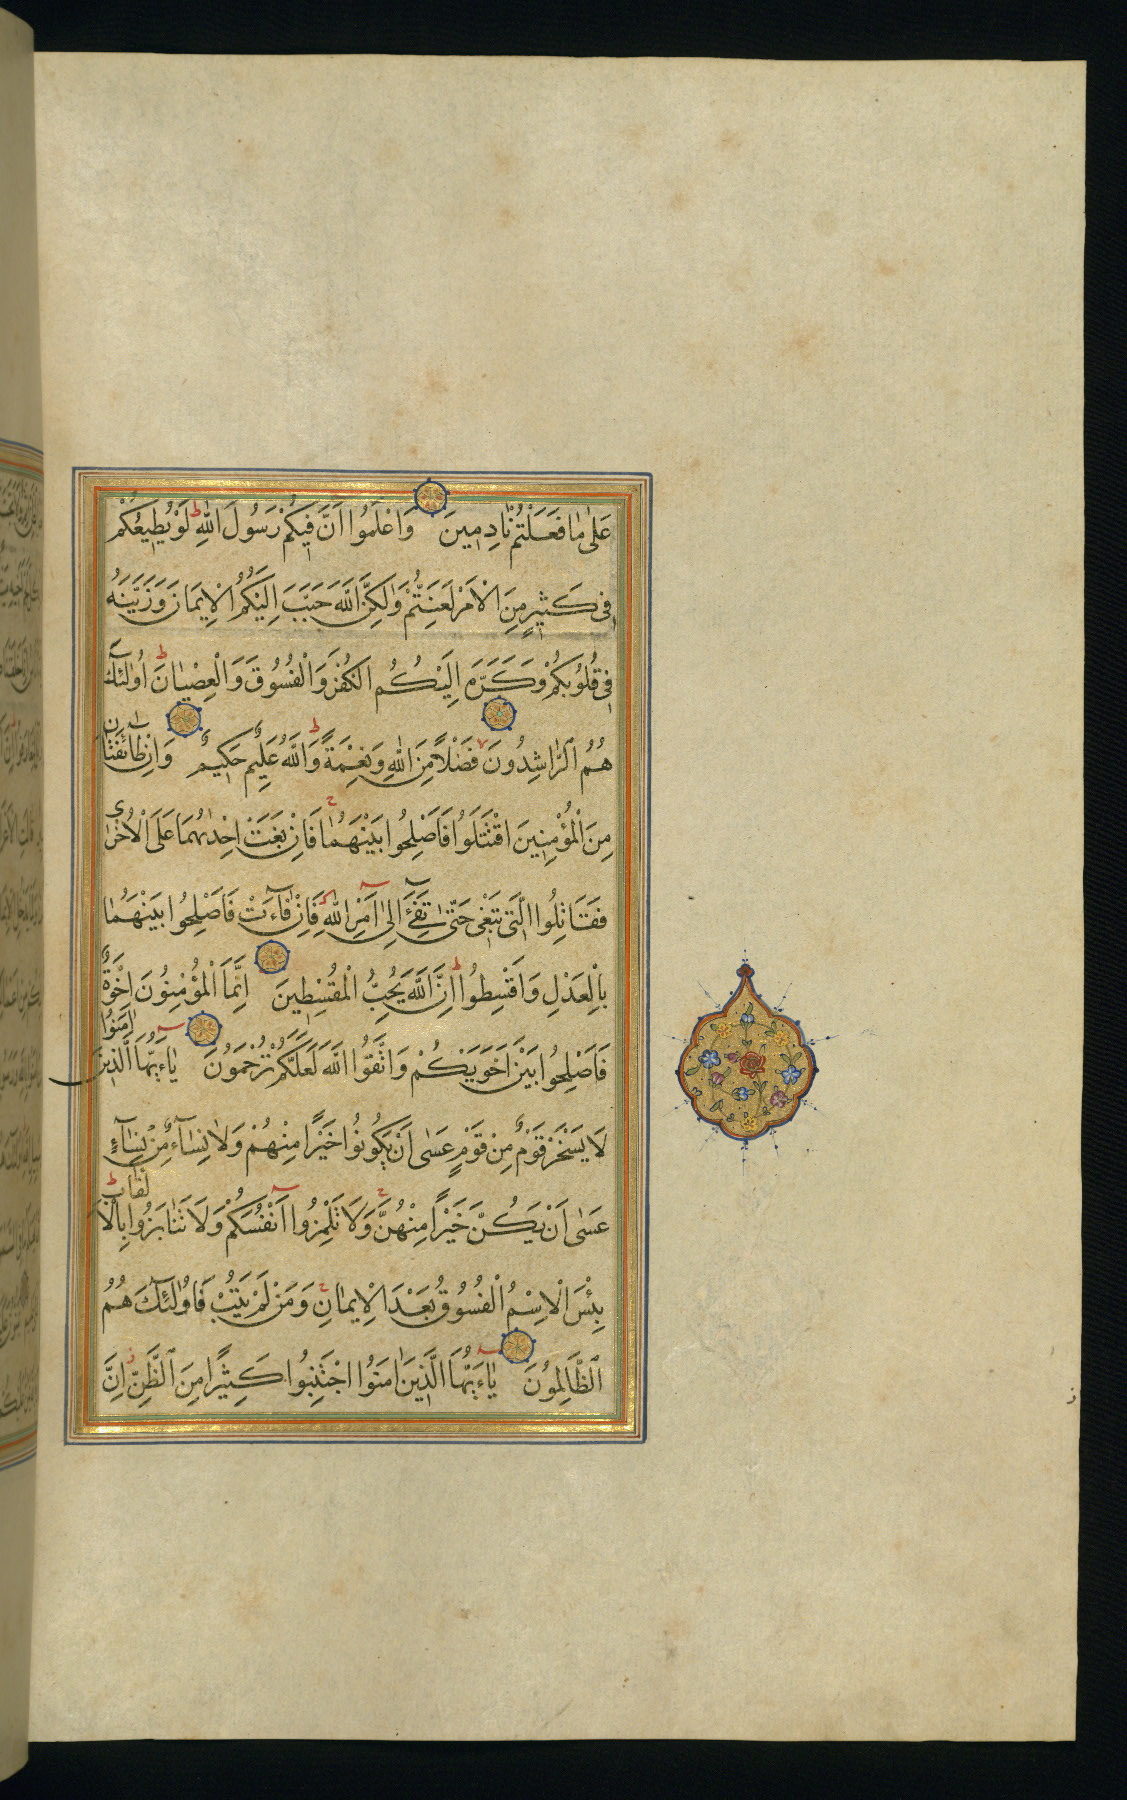 عَلٰى مَا فَعَلْتُمْ نَادِمِينَ وَاعْلَمُوا اَنَّ فِيكُمْ رَسُولَ اللّٰهِ ط لَوْ يُطِيعُكُمْ
فِى كَثِيرٍ مِنَ الْاَمْرِ لَعَنِتُّمْ وَلٰكِنَّ اللّٰهَ حَبَّبَ اِلَيْكُمُ الْاِيمَانَ وَزَيَّنَهُ
فِى قُلُوبِكُمْ وَكَرَّهَ اِلَيْكُمُ الْكُفْرَ وَالْفُسُوقَ وَالْعِصْيَانَ ط اُولٰئِكَ
هُمُ الرَّاشِدُونَ لا فَضْلًا مِنَ اللّٰهِ وَنِعْمَةً ط وَاللّٰهُ عَلِيمٌ حَكِيمٌ وَاِنْ طَائِفَتَانِ
مِنَ الْمُؤْمِنِينَ اقْتَتَلُوا فَاَصْلِحُوا بَيْنَهُمَا ج فَاِنْ بَغَتْ اِحْدٰىهُمَا عَلَى الْاُخْرٰى
فَقَاتِلُوا الَّتِى تَبْغِى حَتّٰى تَفِىٓءَ اِلٰٓى اَمْرِ اللّٰهِ فَاِنْ فَآءَتْ فَاَصْلِحُوا بَيْنَهُمَا
بِالْعَدْلِ وَاَقْسِطُوا ط اِنَّ اللّٰهَ يُحِبُّ الْمُقْسِطِينَ اِنَّمَا الْمُؤْمِنُونَ اِخْوَةٌ
فَاَصْلِحُوا بَيْنَ اَخَوَيْكُمْ وَاتَّقُوا اللّٰهَ لَعَلَّكُمْ تُرْحَمُونَ يٰٓاَيُّهَا الَّذِينَ اٰمَنُوا
لَا يَسْخَرْ قَوْمٌ مِنْ قَوْمٍ عَسٰٓى اَنْ يَكُونُوا خَيْرًا مِنْهُمْ وَلَا نِسَآءٌ مِنْ نِسَآءٍ
عَسٰٓى اَنْ يَكُنَّ خَيْرًا مِنْهُنَّ ج وَلَا تَلْمِزُوٓا اَنْفُسَكُمْ وَلَا تَنَابَزُوا بِالْاَلْقَابِ ط
بِئْسَ الْاِسْمُ الْفُسُوقُ بَعْدَ الْاِيمَانِ ج وَمَنْ لَمْ يَتُبْ فَاُولٰٓئِكَ هُمُ
الظَّالِمُونَ يٰٓاَيُّهَا الَّذِينَ اٰمَنُوا اجْتَنِبُوا كَثِيرًا مِنَ الظَّنِّ ز اِنَّ
ز